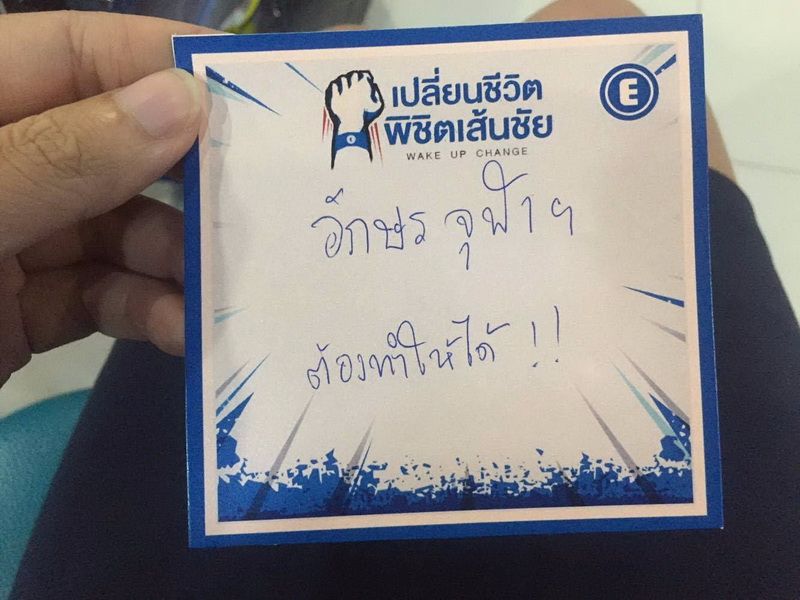 เปลี่ยนชีวิต
พิชิตเส้นชัย
WAKE UP CHANGE
E
อักษร จุฬาฯ
ต้องทำให้ได้ !!